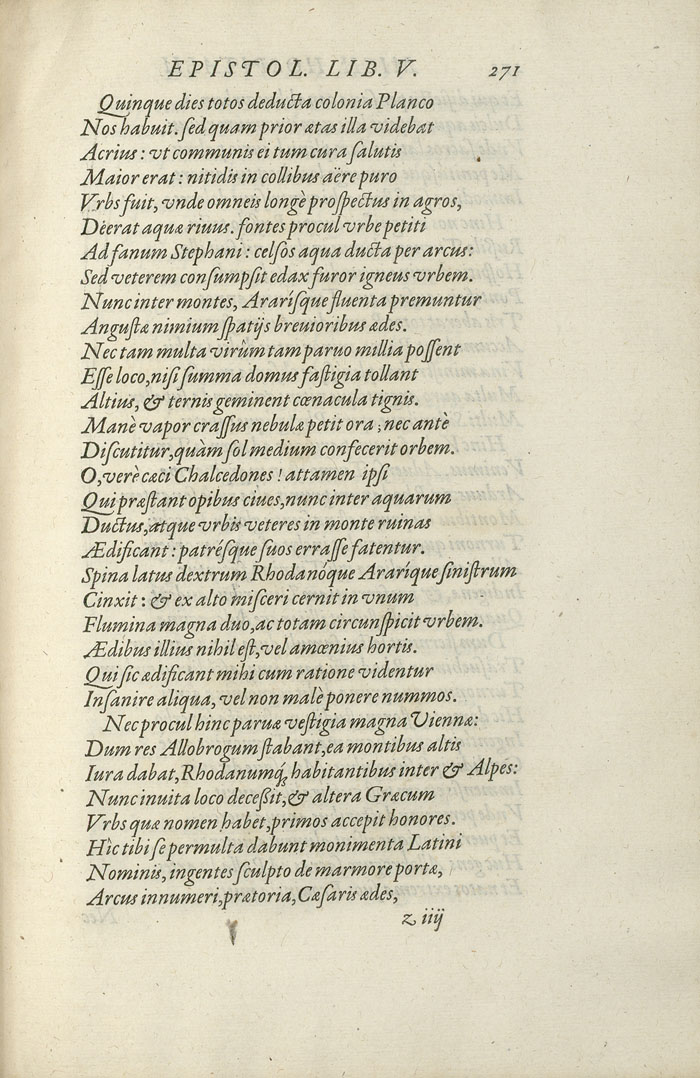 EPISTOL. LIB. V. 271
Quinque dies totos deducta colonia Planco
Nos habuit. sed quam prior ætas illa videbat
Acrius: vt communis ei tum cura salutis
Maior erat: nitidis in collibus aëre puro
Vrbs fuit, vnde omneis longè prospectus in agros,
Déerat aquæ riuus. fontes procul vrbe petiti
Ad fanum Stephani: celsos aqua ducta per arcus:
Sed veterem consumpsit edax furor igneus vrbem.
Nunc inter montes, Ararísque fluenta premuntur
Angustæ nimium spatijs breuioribus ædes.
Nec tam multa virûm tam paruo millia possent
Esse loco, nisi summa domus fastigia tollant
Altius, & ternis geminent cœnacula tignis.
Manè vapor crassus nebulæ petit ora; nec antè
Discutitur, quàm sol medium confecerit orbem.
O, verè cæci Chalcedones! attamen ipsi
Qui præstant opibus ciues, nunc inter aquarum
Ductus, atque vrbis veteres in monte ruinas
Ædificant: patrésque suos errasse fatentur.
Spina latus dextrum Rhodanóque Ararique sinistrum
Cinxit: & ex alto misceri cernit in vnum
Flumina magna duo, ac totam circunspicit vrbem.
Ædibus illius nihil est, vel amœnius hortis.
Qui sic ædificant mihi cum ratione videntur
Insanire aliqua, vel non malè ponere nummos.
Nec procul hinc paruæ vestigia magna Viennæ:
Dum res Allobrogum stabant, ea montibus altis
Iura dabat, Rhodanumq́; habitantibus inter & Alpes:
Nunc inuita loco decessit, & altera Græcum
Vrbs quæ nomen habet, primos accepit honores.
Hîc tibi se permulta dabunt monimenta Latini
Nominis, ingentes sculpto de marmore portæ,
Arcus innumeri, prætoria, Cæsaris ædes,
z iiij